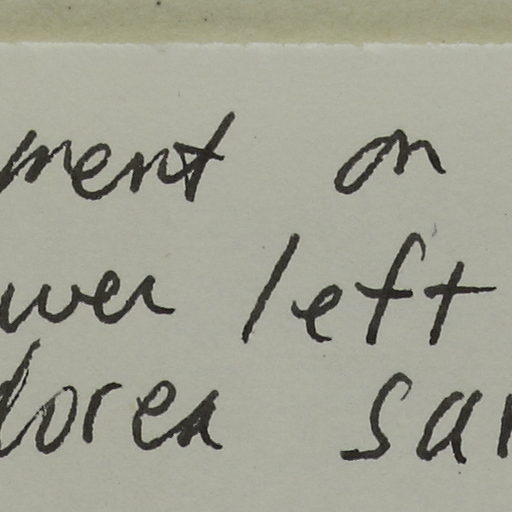 ment on
wer left
lorea sar